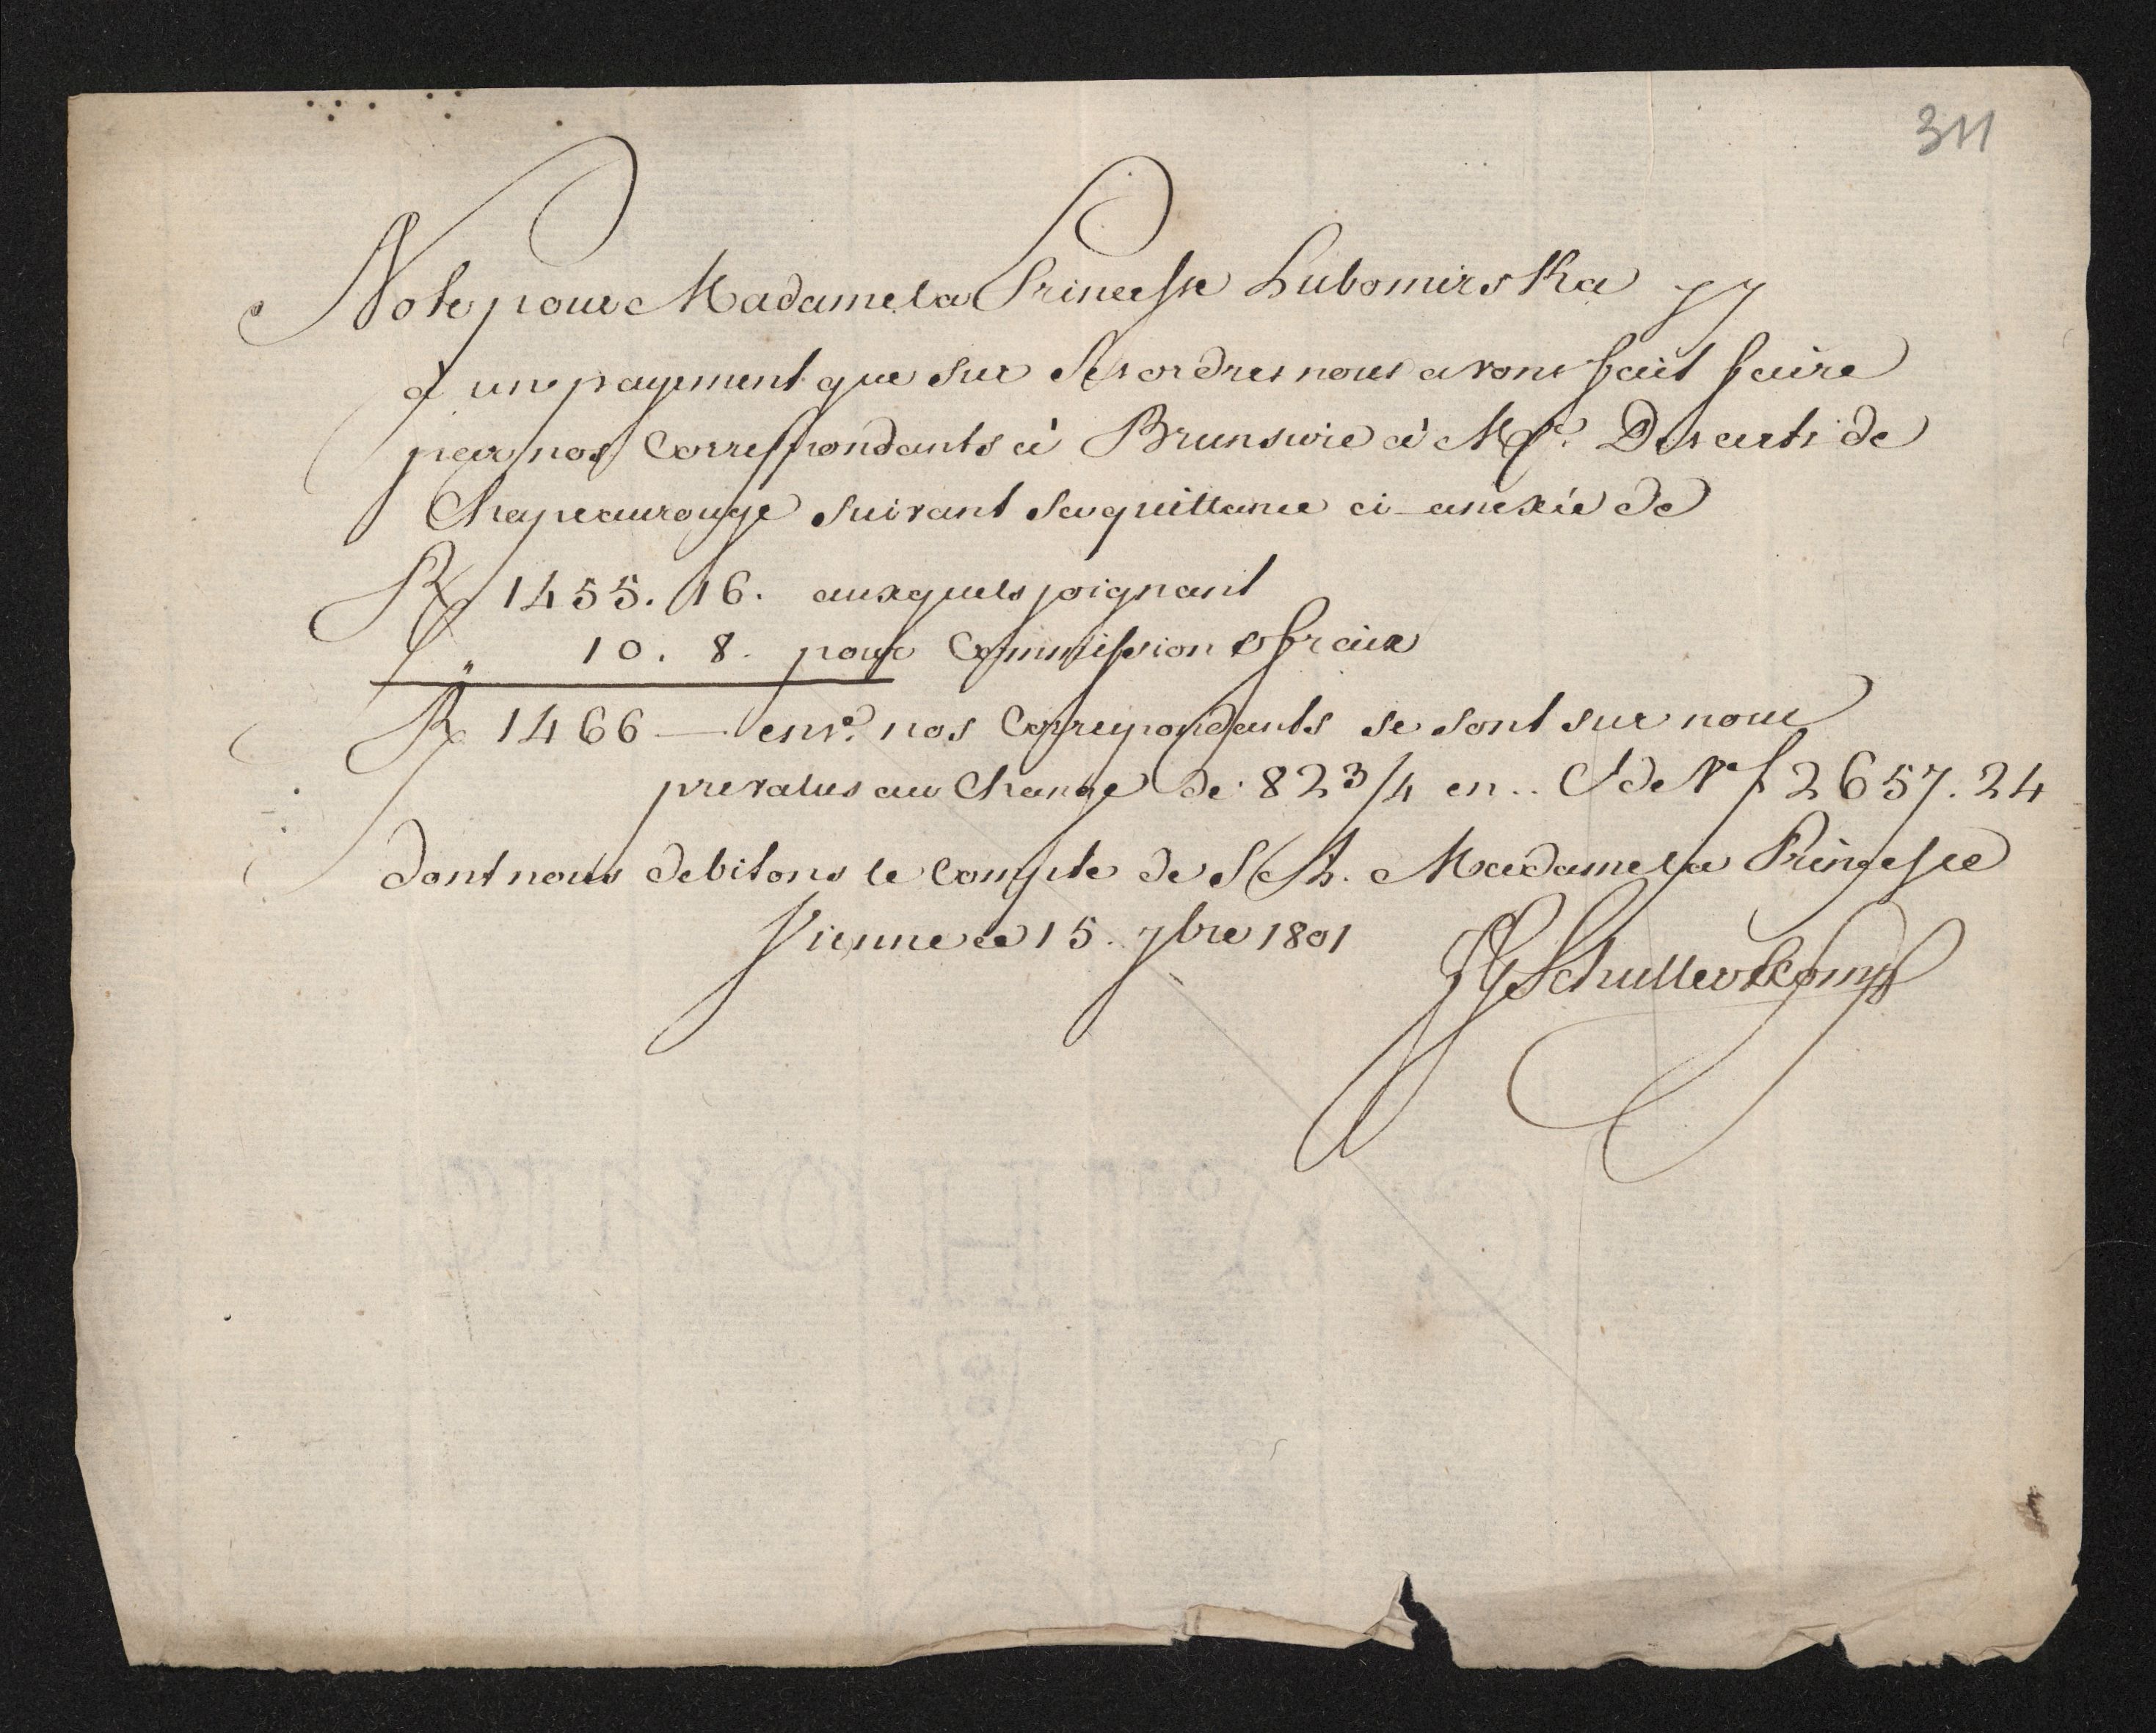 311
Note pour Madame la Princesse Lubomirska
d'un payement que sur Ses ordres nous avons fait faire
par nos Correspondants à Brunswic à Mr. Desarts de
Chapeaurouge suivant sa quittance ci-anexée de
R 1455. 16. auxquels joignant
" 10. 8. pour Commission & fraix
R 1466 — nos Correspondants se sont sur nous
prevalus au Change de 82 3/4 en .. f 2657. 24
dont nous debitons le Compte de S. A. Madame la Princesse
Vienne ce 15. 7bre 1801
JG Schuller & Comp